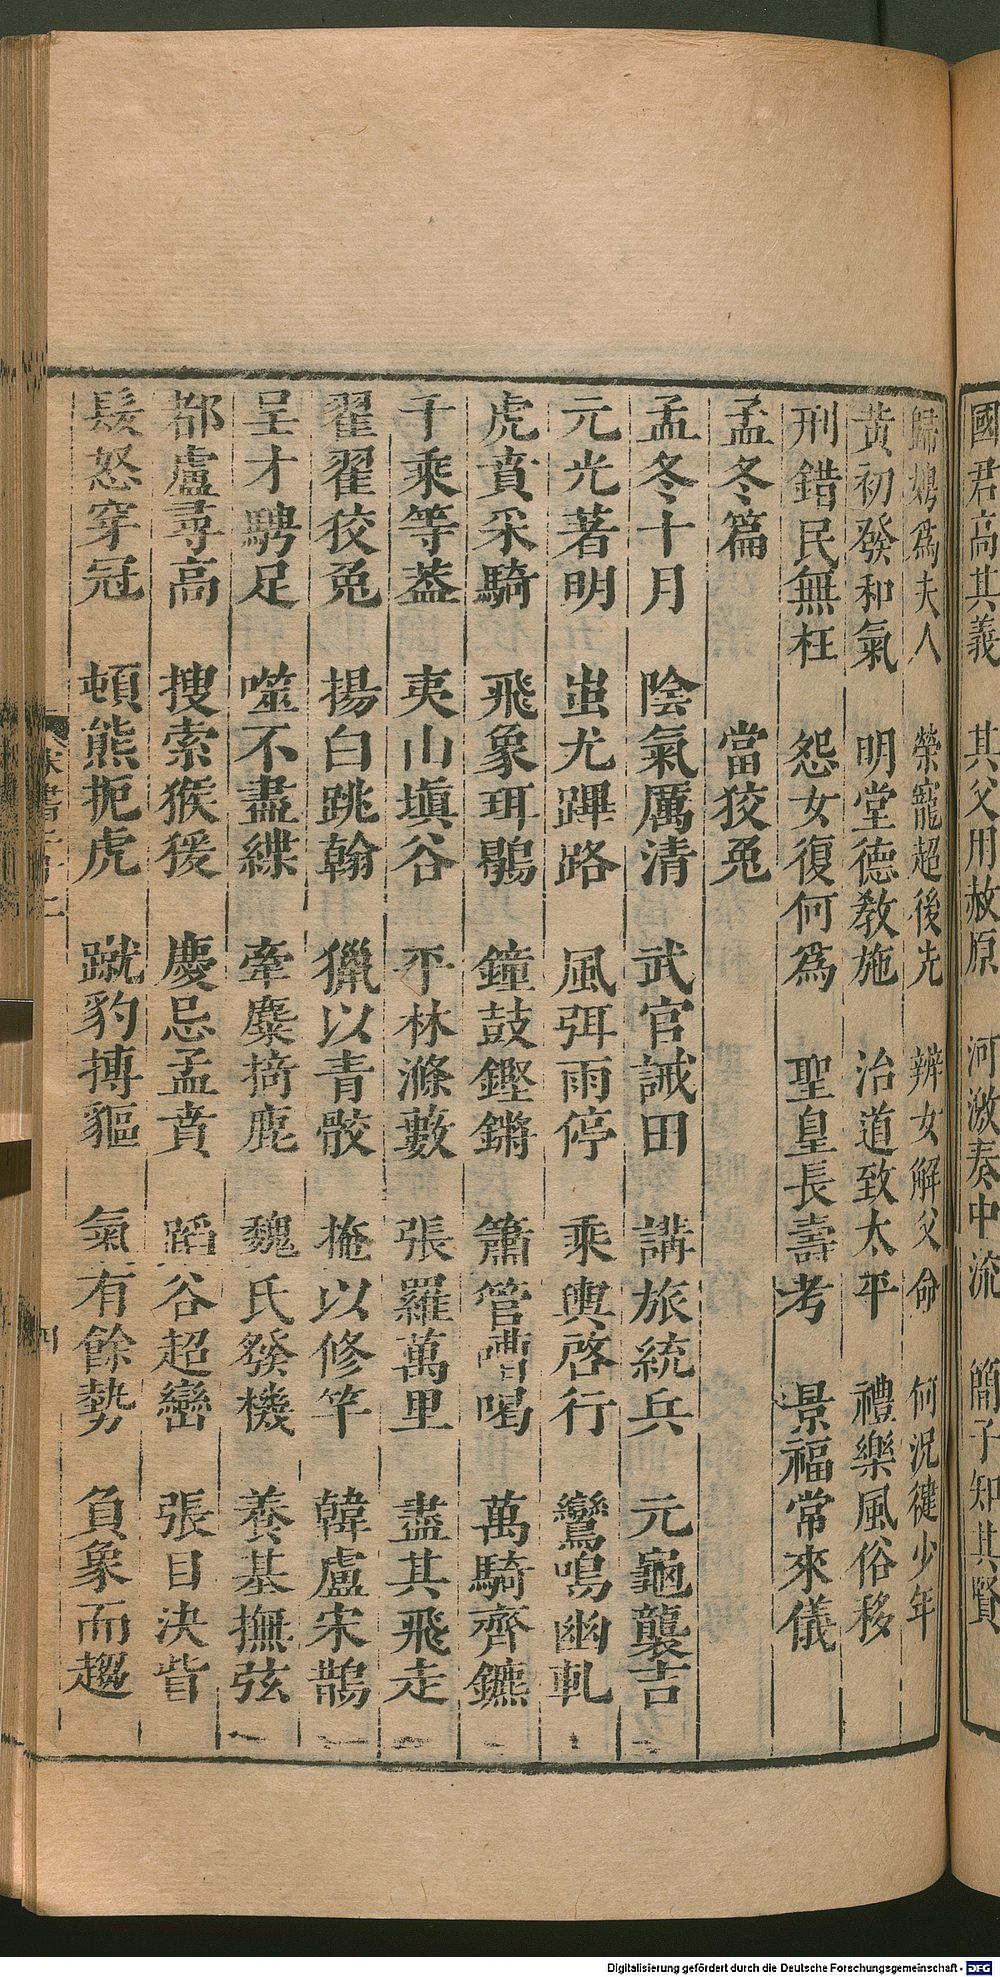 國君高其義　其父用赦原　河激奏中流　簡子知其賢
歸娉爲夫人　榮寵超後先　辨女解父命　何況健少年
黃初發和氣　明堂德教施　治道致太平　禮樂風俗移
刑錯民無枉　怨女復何爲　聖皇長壽考　景福常來儀
孟冬篇　當狡兎
孟冬十月　陰氣厲清　武官誡田　講旅統兵　元龜襲吉
元光著明　蚩尤蹕路　風弭雨停　乘輿啓行　鸞鳴幽軋
虎賁采騎　飛象珥鶡　鐘鼓鏗鏘　簫管嘈喝　萬騎齊鑣
千乘等葢　夷山塡谷　平林滌藪　張羅萬里　盡其飛走
翟翟狡兎　揚白跳翰　獵以青骹　掩以修竿　韓盧宋鵲
呈才騁足　噬不盡緤　牽麋掎鹿　魏氏發機　養基撫弦
都盧尋高　搜索猴猨　慶忌孟賁　蹈谷超巒　張目決眥
髮怒穿冠　頓熊扼虎　蹴豹搏貙　氣有餘勢　負象而趨
Digitalisierung gefördert durch die Deutsche Forschungsgemeinschaft - DFG